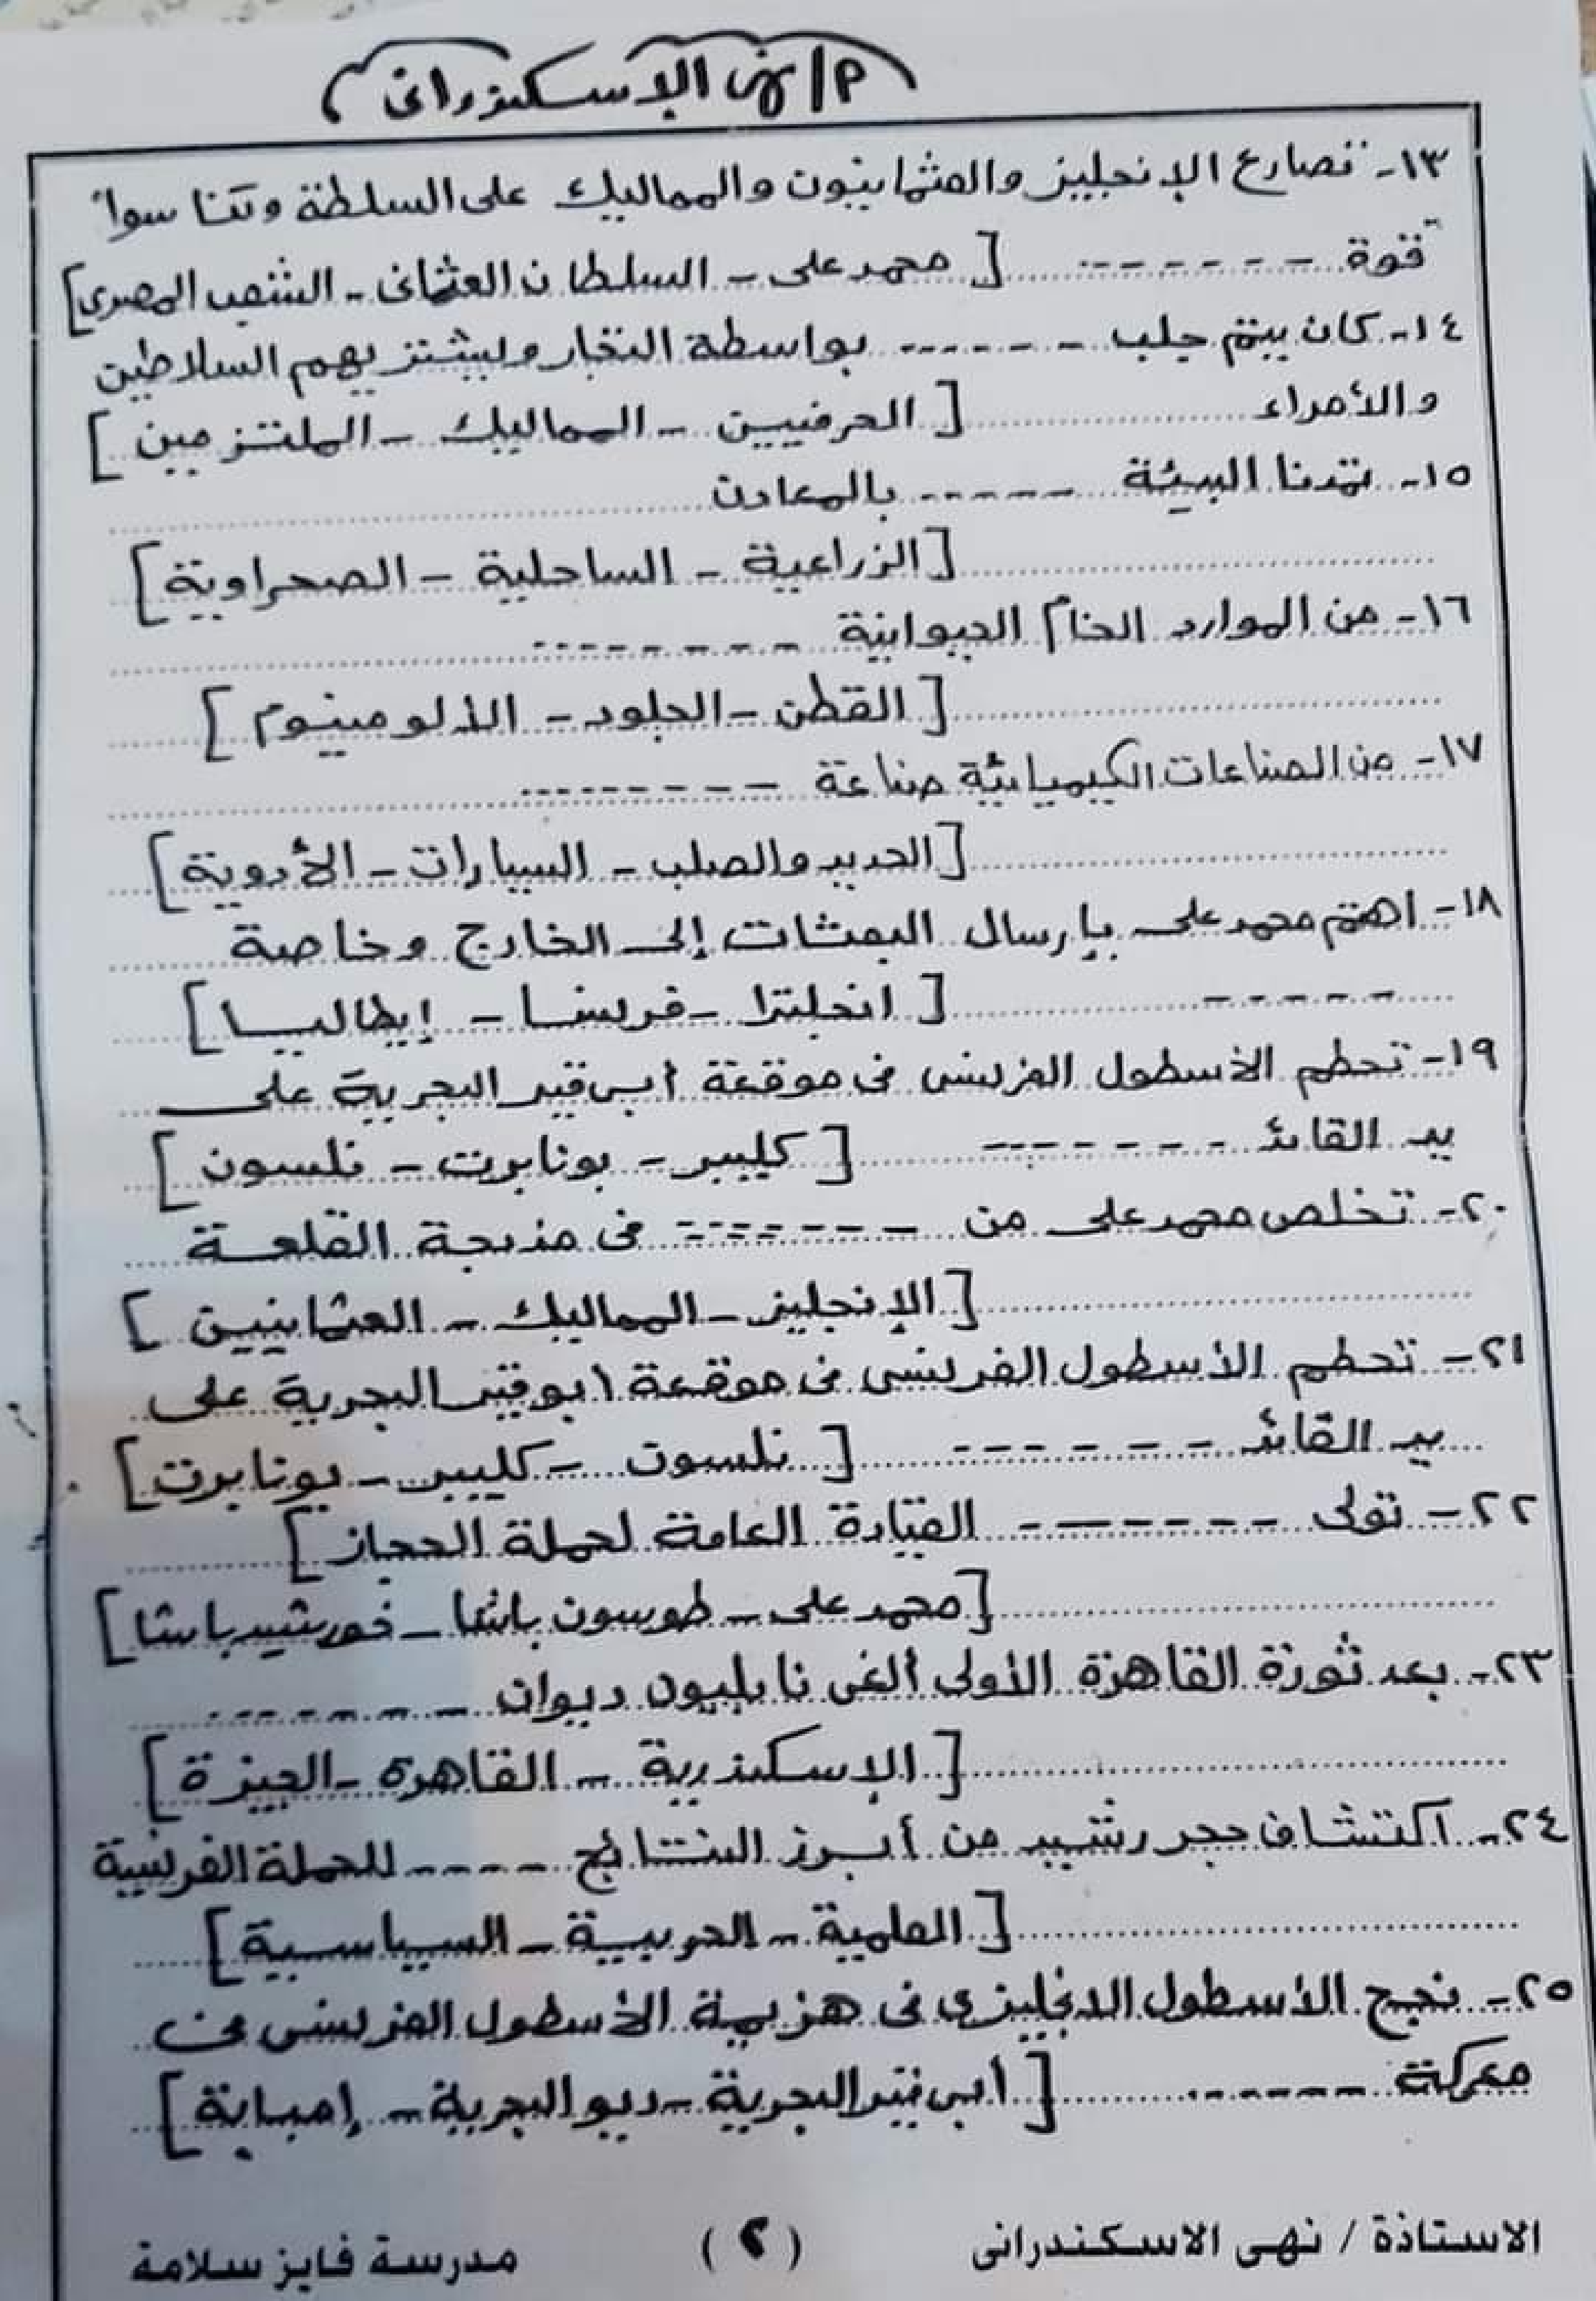 م/ نهى الإسكندرانى
١٣- تصارع الإنجليز والعثمانيون والمماليك على السلطة وتناسوا
قوة ------- [ محمد على - السلطان العثمانى - الشعب المصرى]
١٤- كان يتم جلب ------ بواسطة التجار ويشتريهم السلاطين
والأمراء [ الحرفيين - المماليك - الملتزمين ]
١٥- تمدنا البيئة ------ بالمعادن
[الزراعية - الساحلية - الصحراوية]
١٦- من الموارد الخام الحيوانية --------
[ القطن - الجلود - الألومنيوم ]
١٧- من الصناعات الكيميائية صناعة --------
[ الحديد والصلب - السيارات - الأدوية]
١٨- اهتم محمد على بإرسال البعثات إلى الخارج وخاصة
------ [ انجلترا - فرنسا - إيطاليا ]
١٩- تحطم الأسطول الفرنسى فى موقعة أبى قير البحرية على
يد القائد ------- [ كليبر - بونابرت - نلسون ]
٢٠- تخلص محمد على من ------- فى مذبحة القلعة
[ الإنجليز - المماليك - العثمانيين ]
٢١- تحطم الأسطول الفرنسى فى موقعة ابو قير البحرية على
يد القائد ------- [ نلسون - كليبر - بونابرت ]
٢٢- تولى ------- القيادة العامة لحملة الحجاز ]
[محمد على - طوسون باشا - خورشيد باشا]
٢٣- بعد ثورة القاهرة الأولى ألغى نابليون ديوان -------
[ الإسكندرية - القاهرة - الجيزة ]
٢٤- اكتشاف حجر رشيد من أبرز النتائج ----- للحملة الفرنسية
[ العلمية - الحربية - السياسية ]
٢٥- نجح الأسطول الانجليزى فى هزيمة الأسطول الفرنسى فى
معركة ------ [ أبى قير البحرية - ديو البحرية - إمبابة ]
الاستاذة / نهى الاسكندرانى (٢) مدرسة فايز سلامة